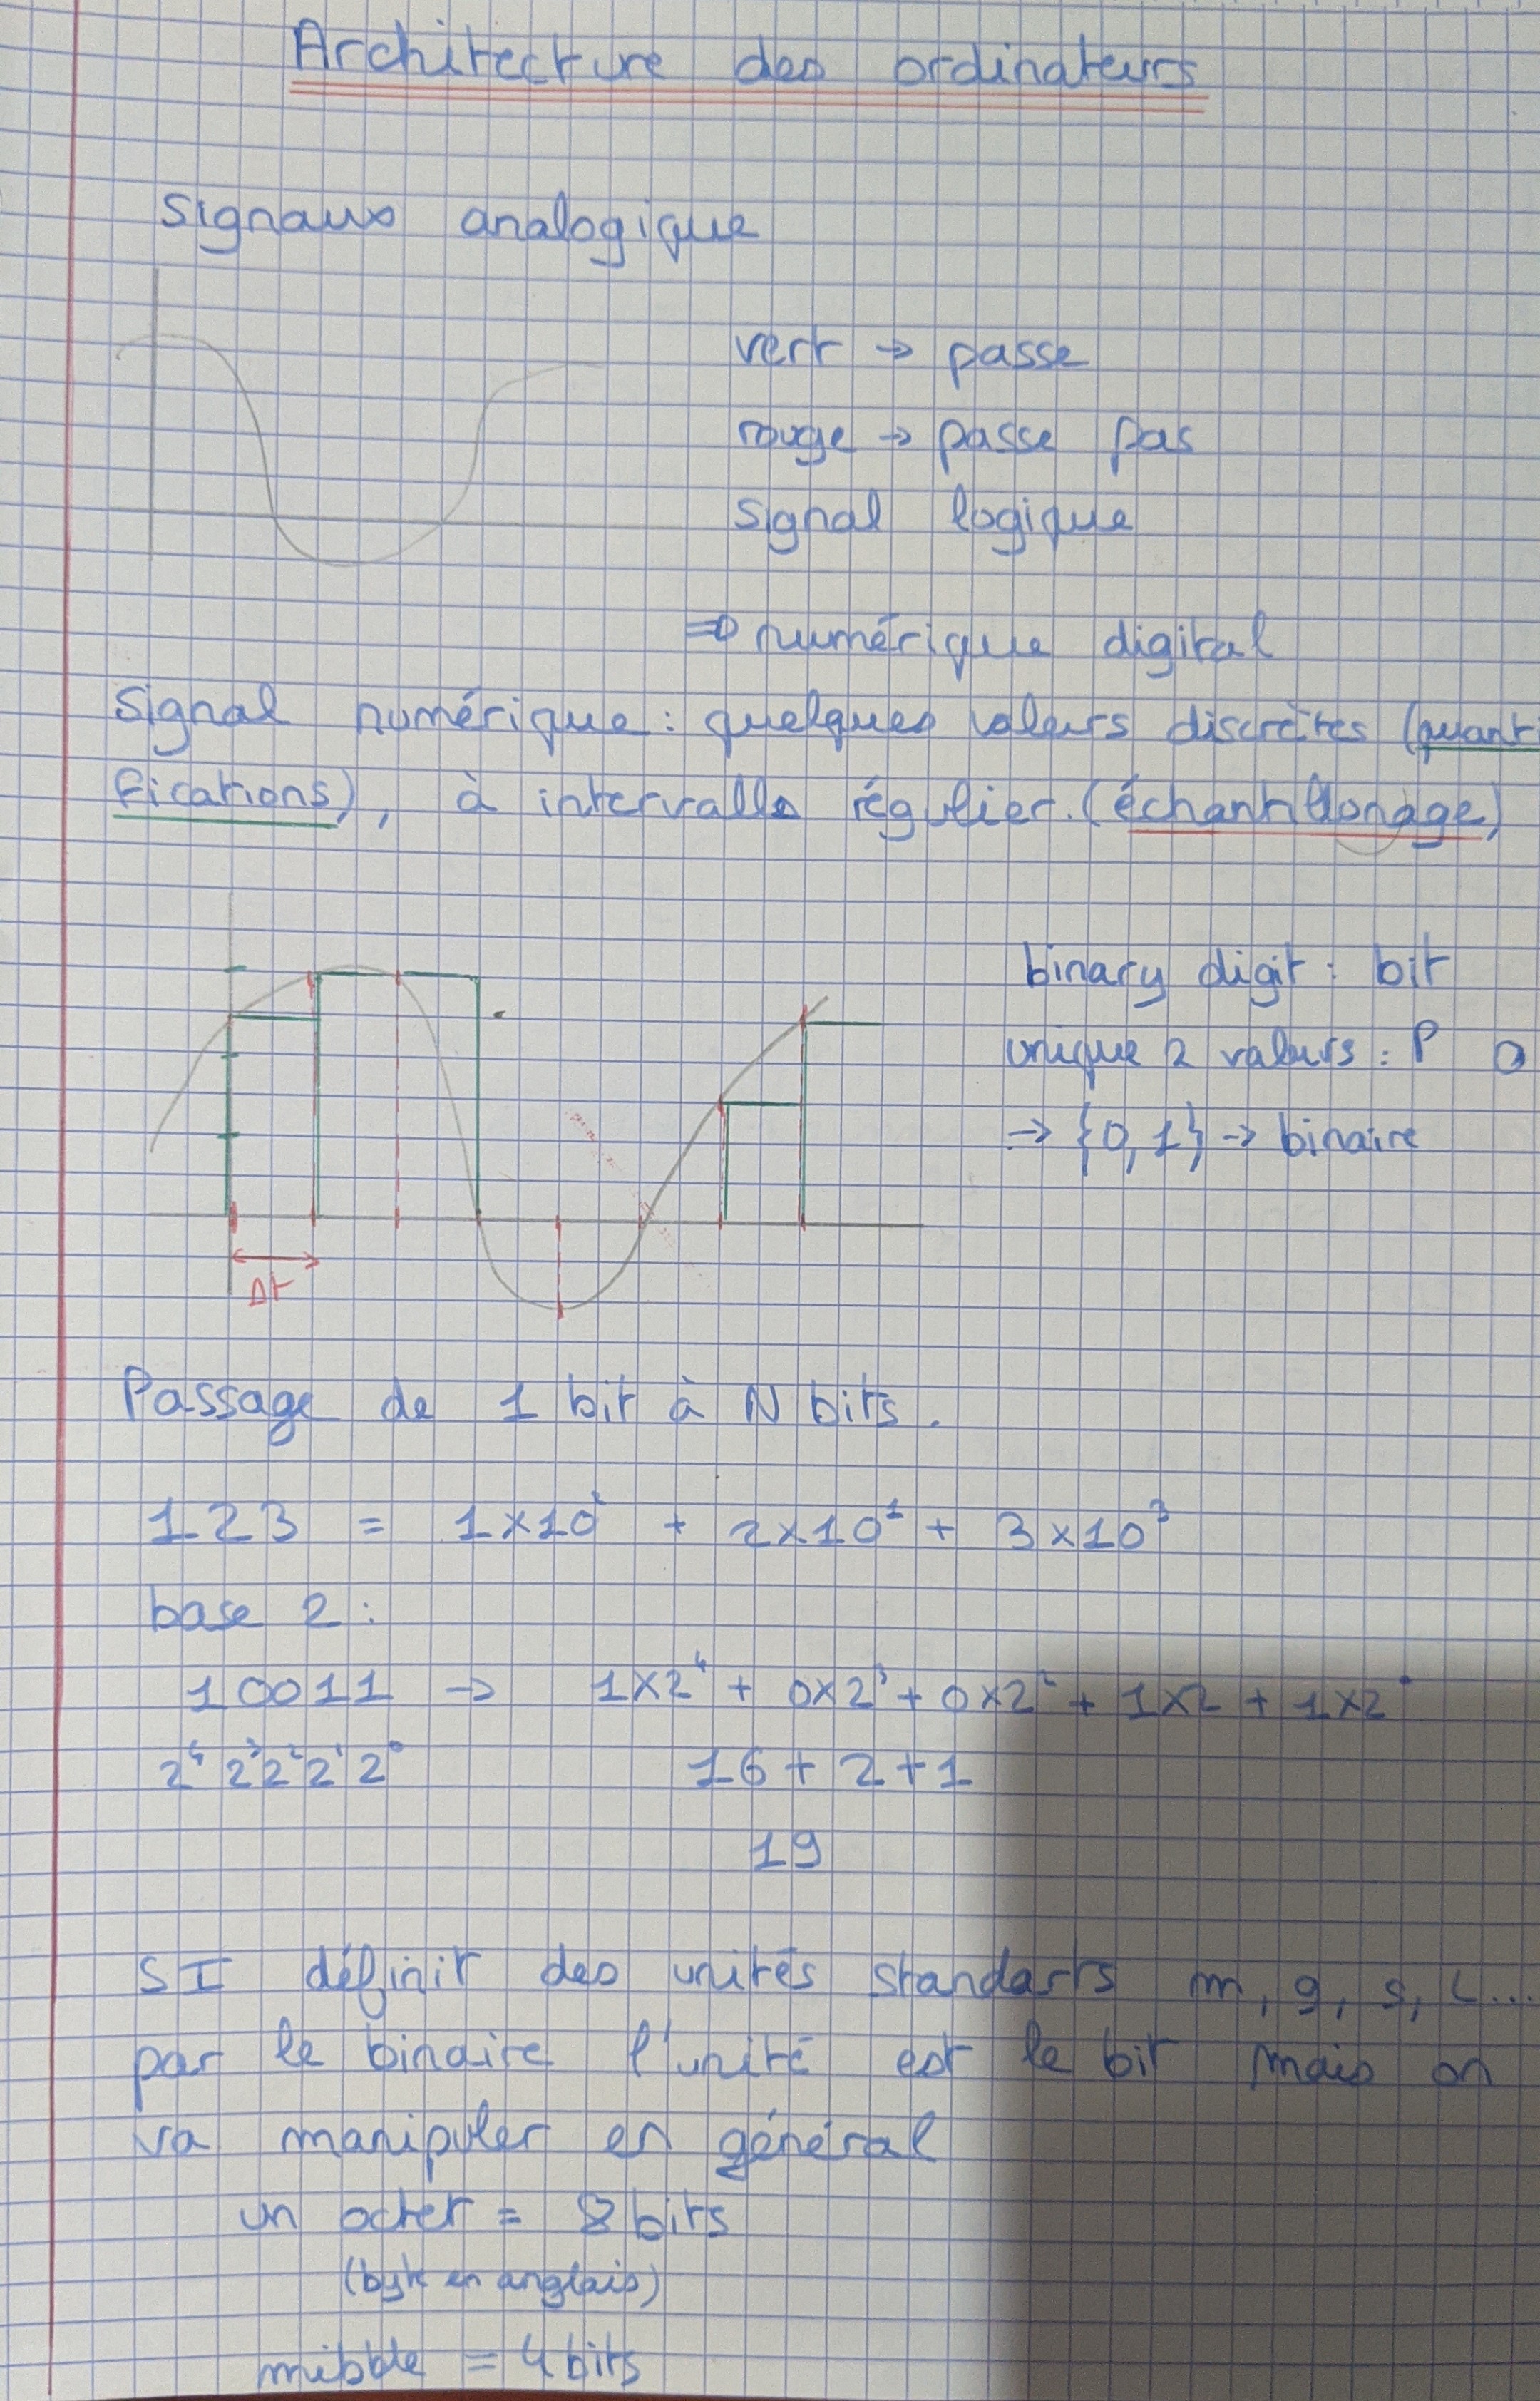 Architecture des ordinateurs
Signaux analogique
vert → passe
rouge → passe pas
signal logique
⇒ numérique digital
Signal numérique : quelques valeurs discrètes (quanti
fications), à intervalle régulier. (échantillonage)
binary digit : bit
unique 2 valeurs : P 0
→ {0, 1} → binaire
Δt
Passage de 1 bit à N bits.
123 = 1×10² + 2×10¹ + 3×10³
base 2 :
10011 → 1×2⁴ + 0×2³ + 0×2² + 1×2 + 1×2⁰
2⁴ 2³ 2² 2¹ 2⁰ 16 + 2 + 1
19
SI définir des unités standarts m, g, s, L...
par le binaire l'unité est le bit mais on
va manipuler en général
un octet = 8 bits
(byte en anglais)
mibble = 4 bits